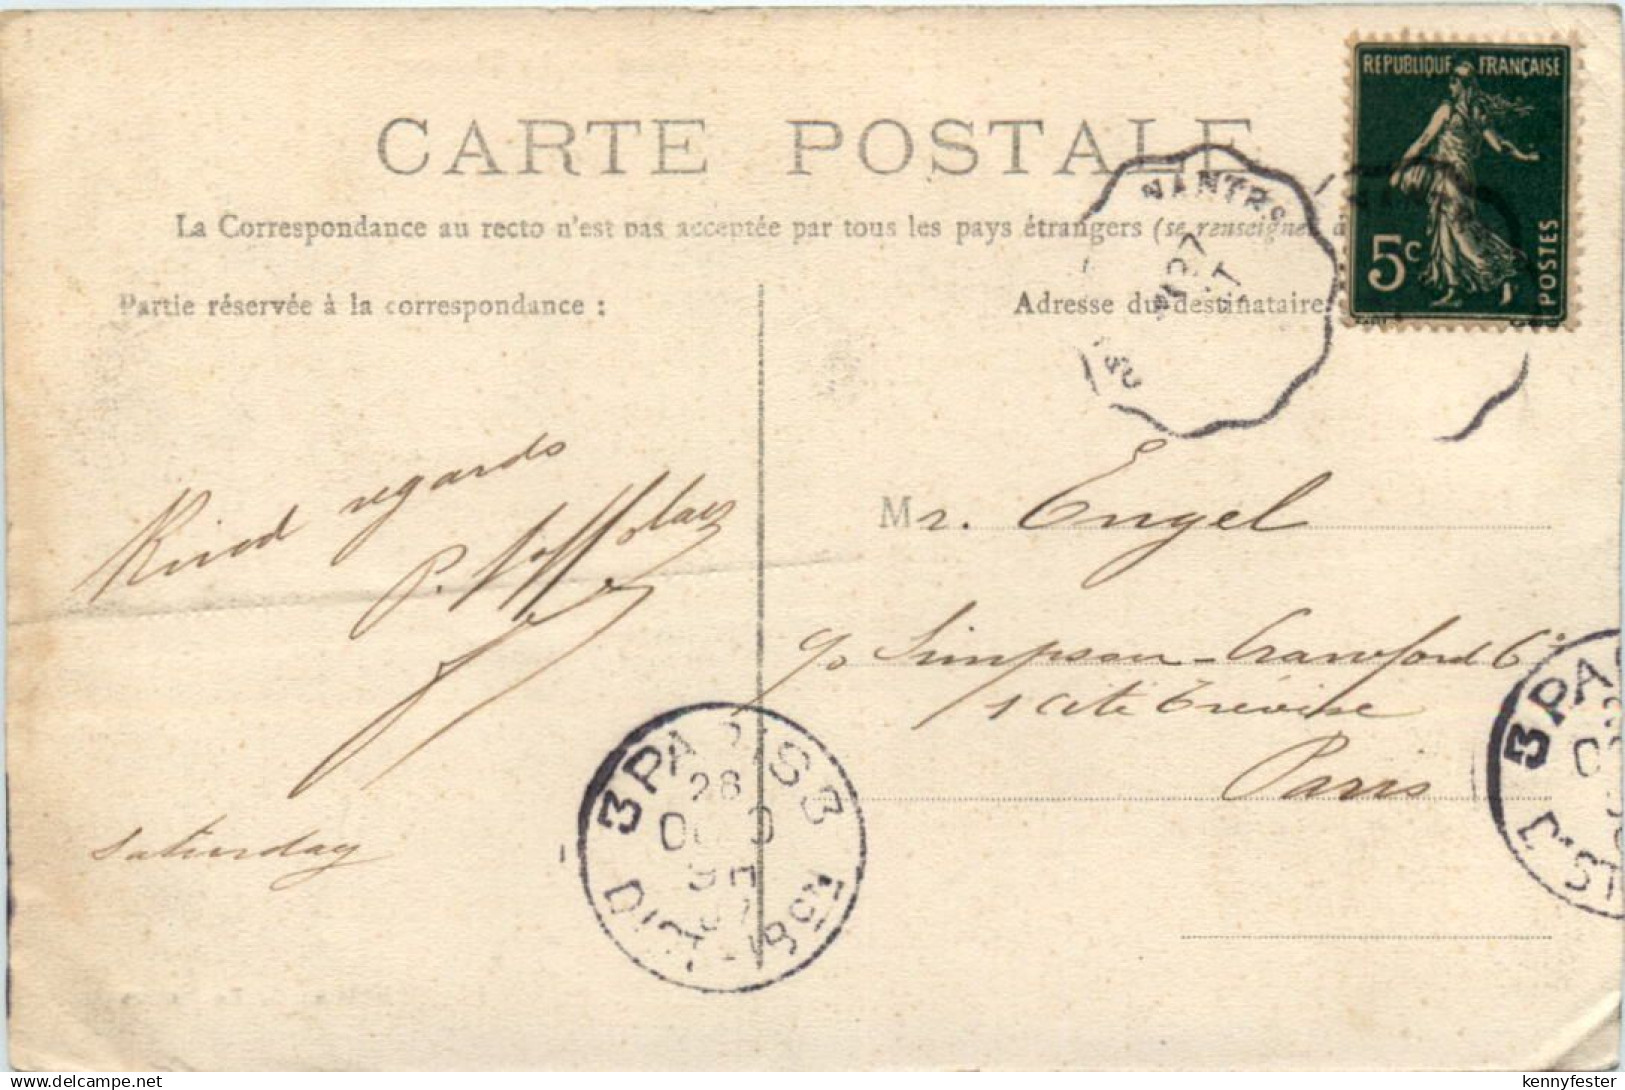 CARTE POSTALE
La Correspondance au recto n'est pas acceptée par tous les pays étrangers (se renseigner
Partie réservée à la correspondance :
Adresse du destinataire
REPUBLIQUE FRANÇAISE
5c
POSTES
Kind regards
P.
saturday
Mr. Engel
c/o Simpson-Crawford Co
1 Cité Trévise
Paris
3 PARIS 3
28
9 H
07
3 PA
delcampe.net
kennyfester